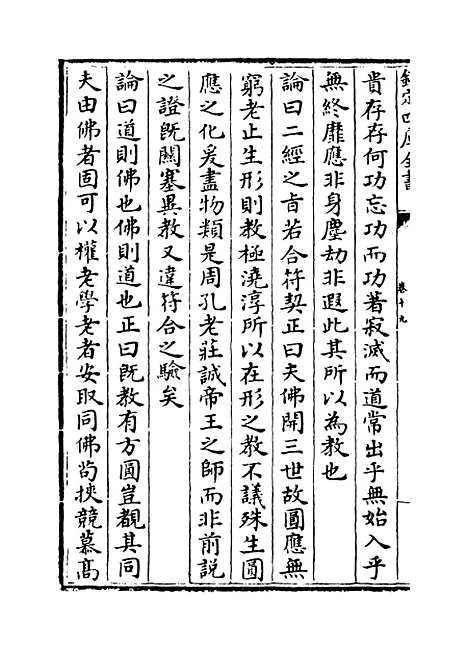 欽定四庫全書
卷十九
貴存存何功忘功而功著寂滅而道常出乎無始入乎
無終靡應非身塵劫非遐此其所以為教也
論曰二經之㫖若合符契正曰夫佛開三世故圓應無
窮老止生形則教極澆淳所以在形之教不議殊生圓
應之化爰盡物類是周孔老莊誠帝王之師而非前説
之證旣闗塞異教又違符合之驗矣
論曰道則佛也佛則道也正曰旣教有方圓豈覩其同
夫由佛者固可以權老學老者安取同佛茍挾競慕髙